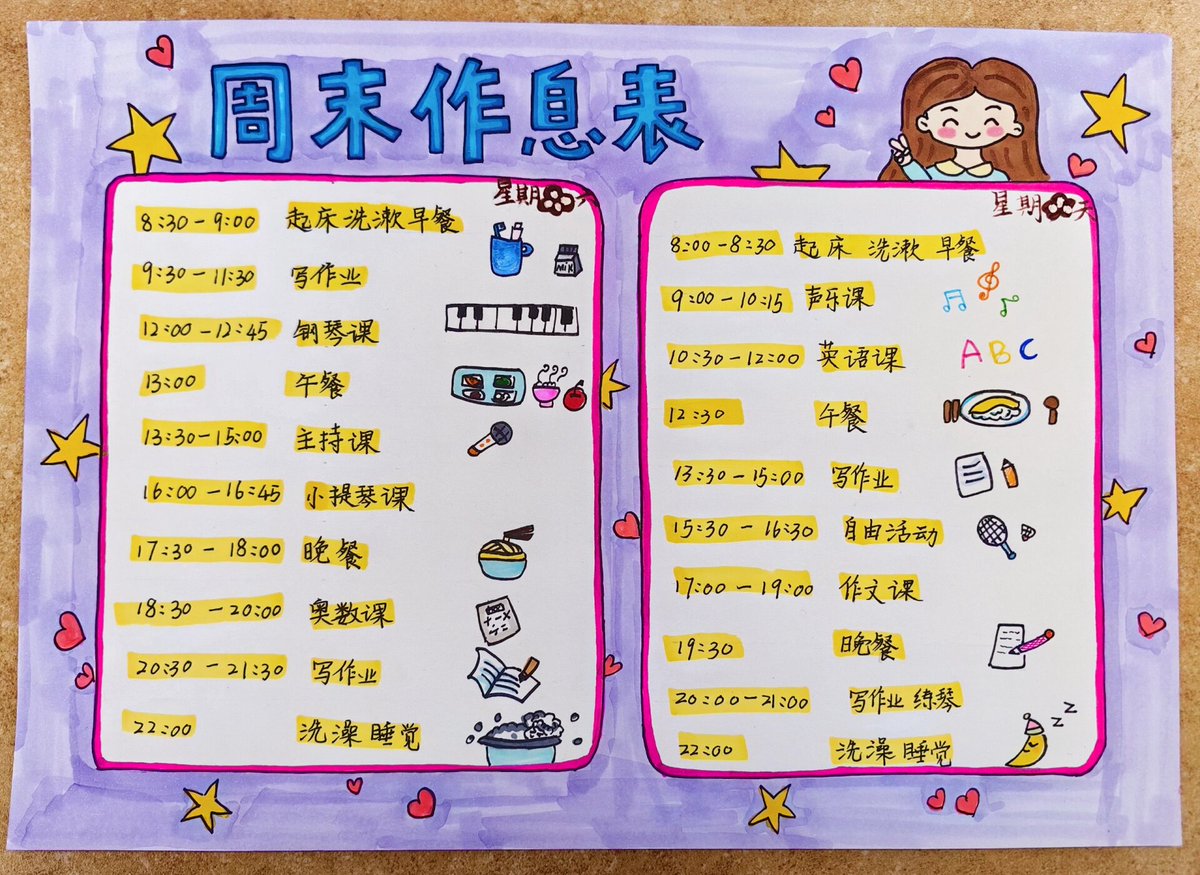 周末作息表
星期 天
8:30-9:00 起床洗漱早餐
9:30-11:30 写作业
MILK
12:00-12:45 钢琴课
13:00 午餐
13:30-15:00 主持课
16:00-16:45 小提琴课
17:30-18:00 晚餐
18:30-20:00 奥数课
20:30-21:30 写作业
22:00 洗澡睡觉
星期 天
8:00-8:30 起床 洗漱 早餐
9:00-10:15 声乐课
10:30-12:00 英语课
ABC
12:30 午餐
13:30-15:00 写作业
15:30-16:30 自由活动
17:00-19:00 作文课
19:30 晚餐
20:00-21:00 写作业 练琴
22:00 洗澡睡觉
z z z